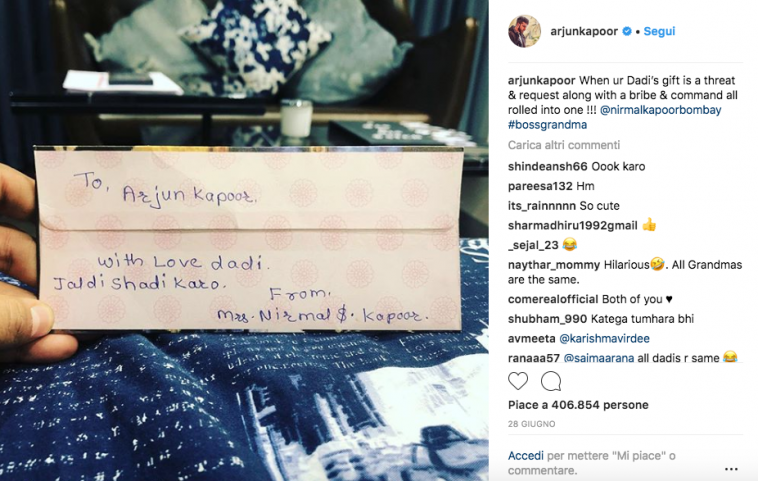 To,
Arjun Kapoor.
With Love dadi.
Jaldi Shadi Karo.
From.
Mrs. Nirmal S. Kapoor.
arjunkapoor • Segui
arjunkapoor When ur Dadi's gift is a threat
& request along with a bribe & command all
rolled into one !!! @nirmalkapoorbombay
#bossgrandma
Carica altri commenti
shindeansh66 Oook karo
pareesa132 Hm
its_rainnnnn So cute
sharmadhiru1992gmail 👍
_sejal_23 😂
naythar_mommy Hilarious🤣. All Grandmas
are the same.
comerealofficial Both of you ♥
shubham_990 Katega tumhara bhi
avmeeta @karishmavirdee
ranaaa57 @saimaarana all dadis r same 😂
Piace a 406.854 persone
28 GIUGNO
Accedi per mettere "Mi piace" o
commentare.